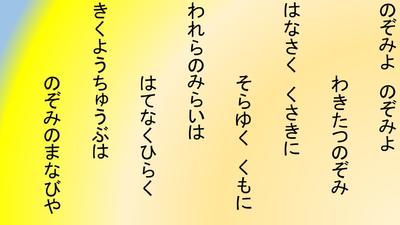 のぞみよ　のぞみよ
わきたつのぞみ
はなさく　くさきに
そらゆく　くもに
われらのみらいは
はてなくひらく
きくようちゅうぶは
のぞみのまなびや